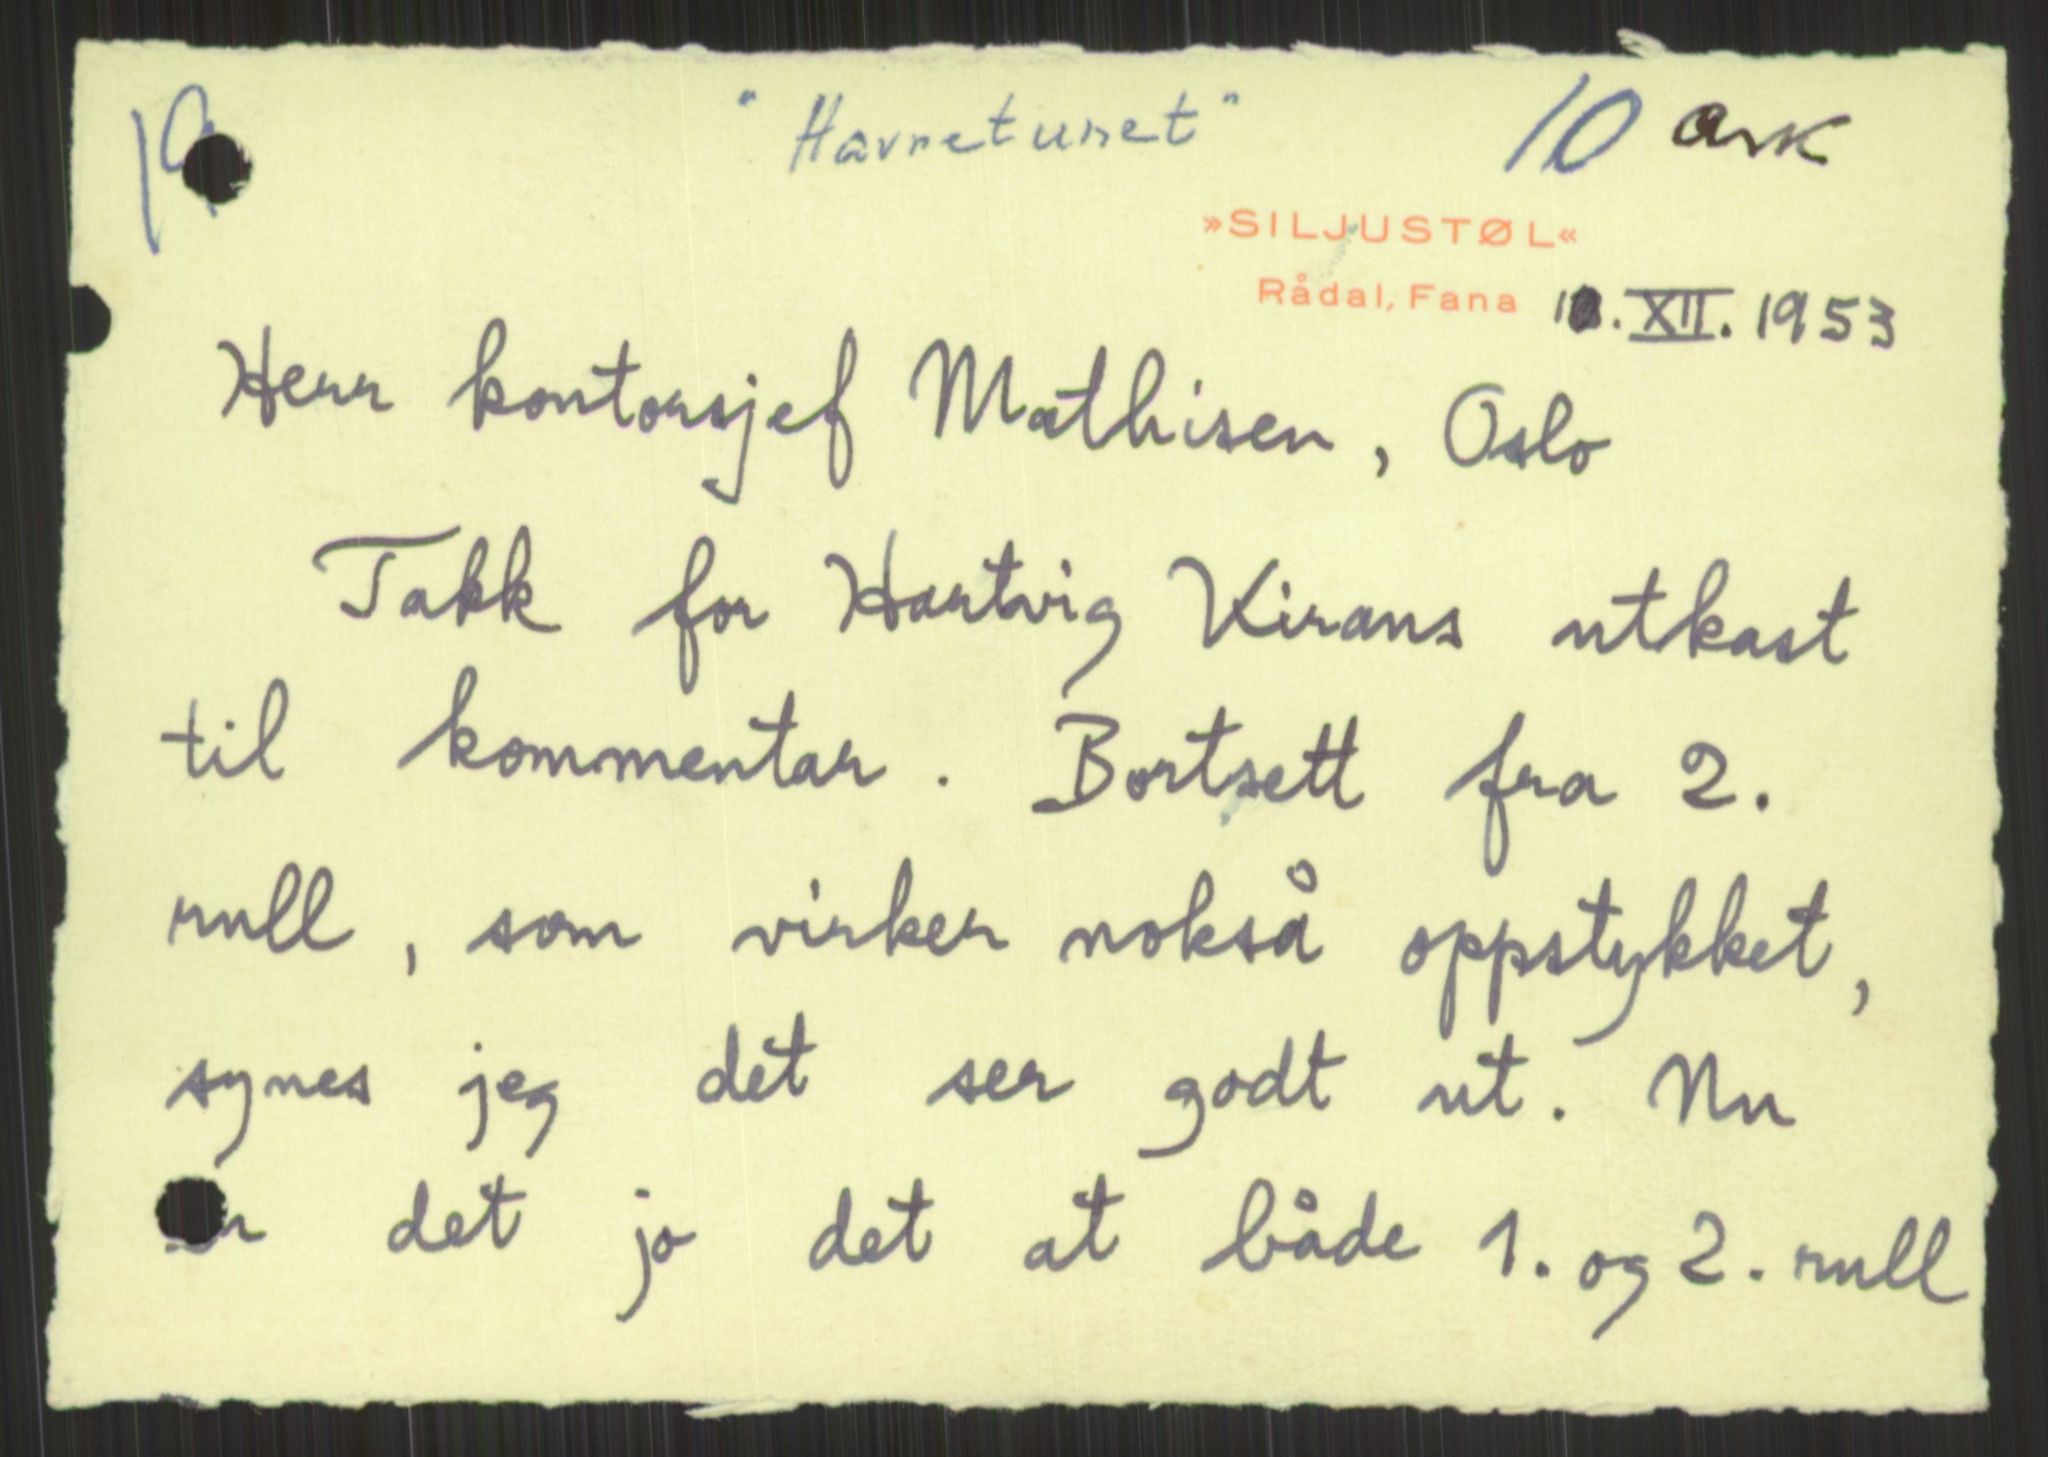 19 "Havnetunet" 10 ark
»SILJUSTØL«
Rådal, Fana .XII. 1953
Herr kontorsjef Mathisen, Oslo
Takk for Hartvig Kirans utkast
til kommentar. Bortsett fra 2.
rull, som virker nokså oppstykket,
synes jeg det ser godt ut. Nu
det jo det at både 1. og 2. rull